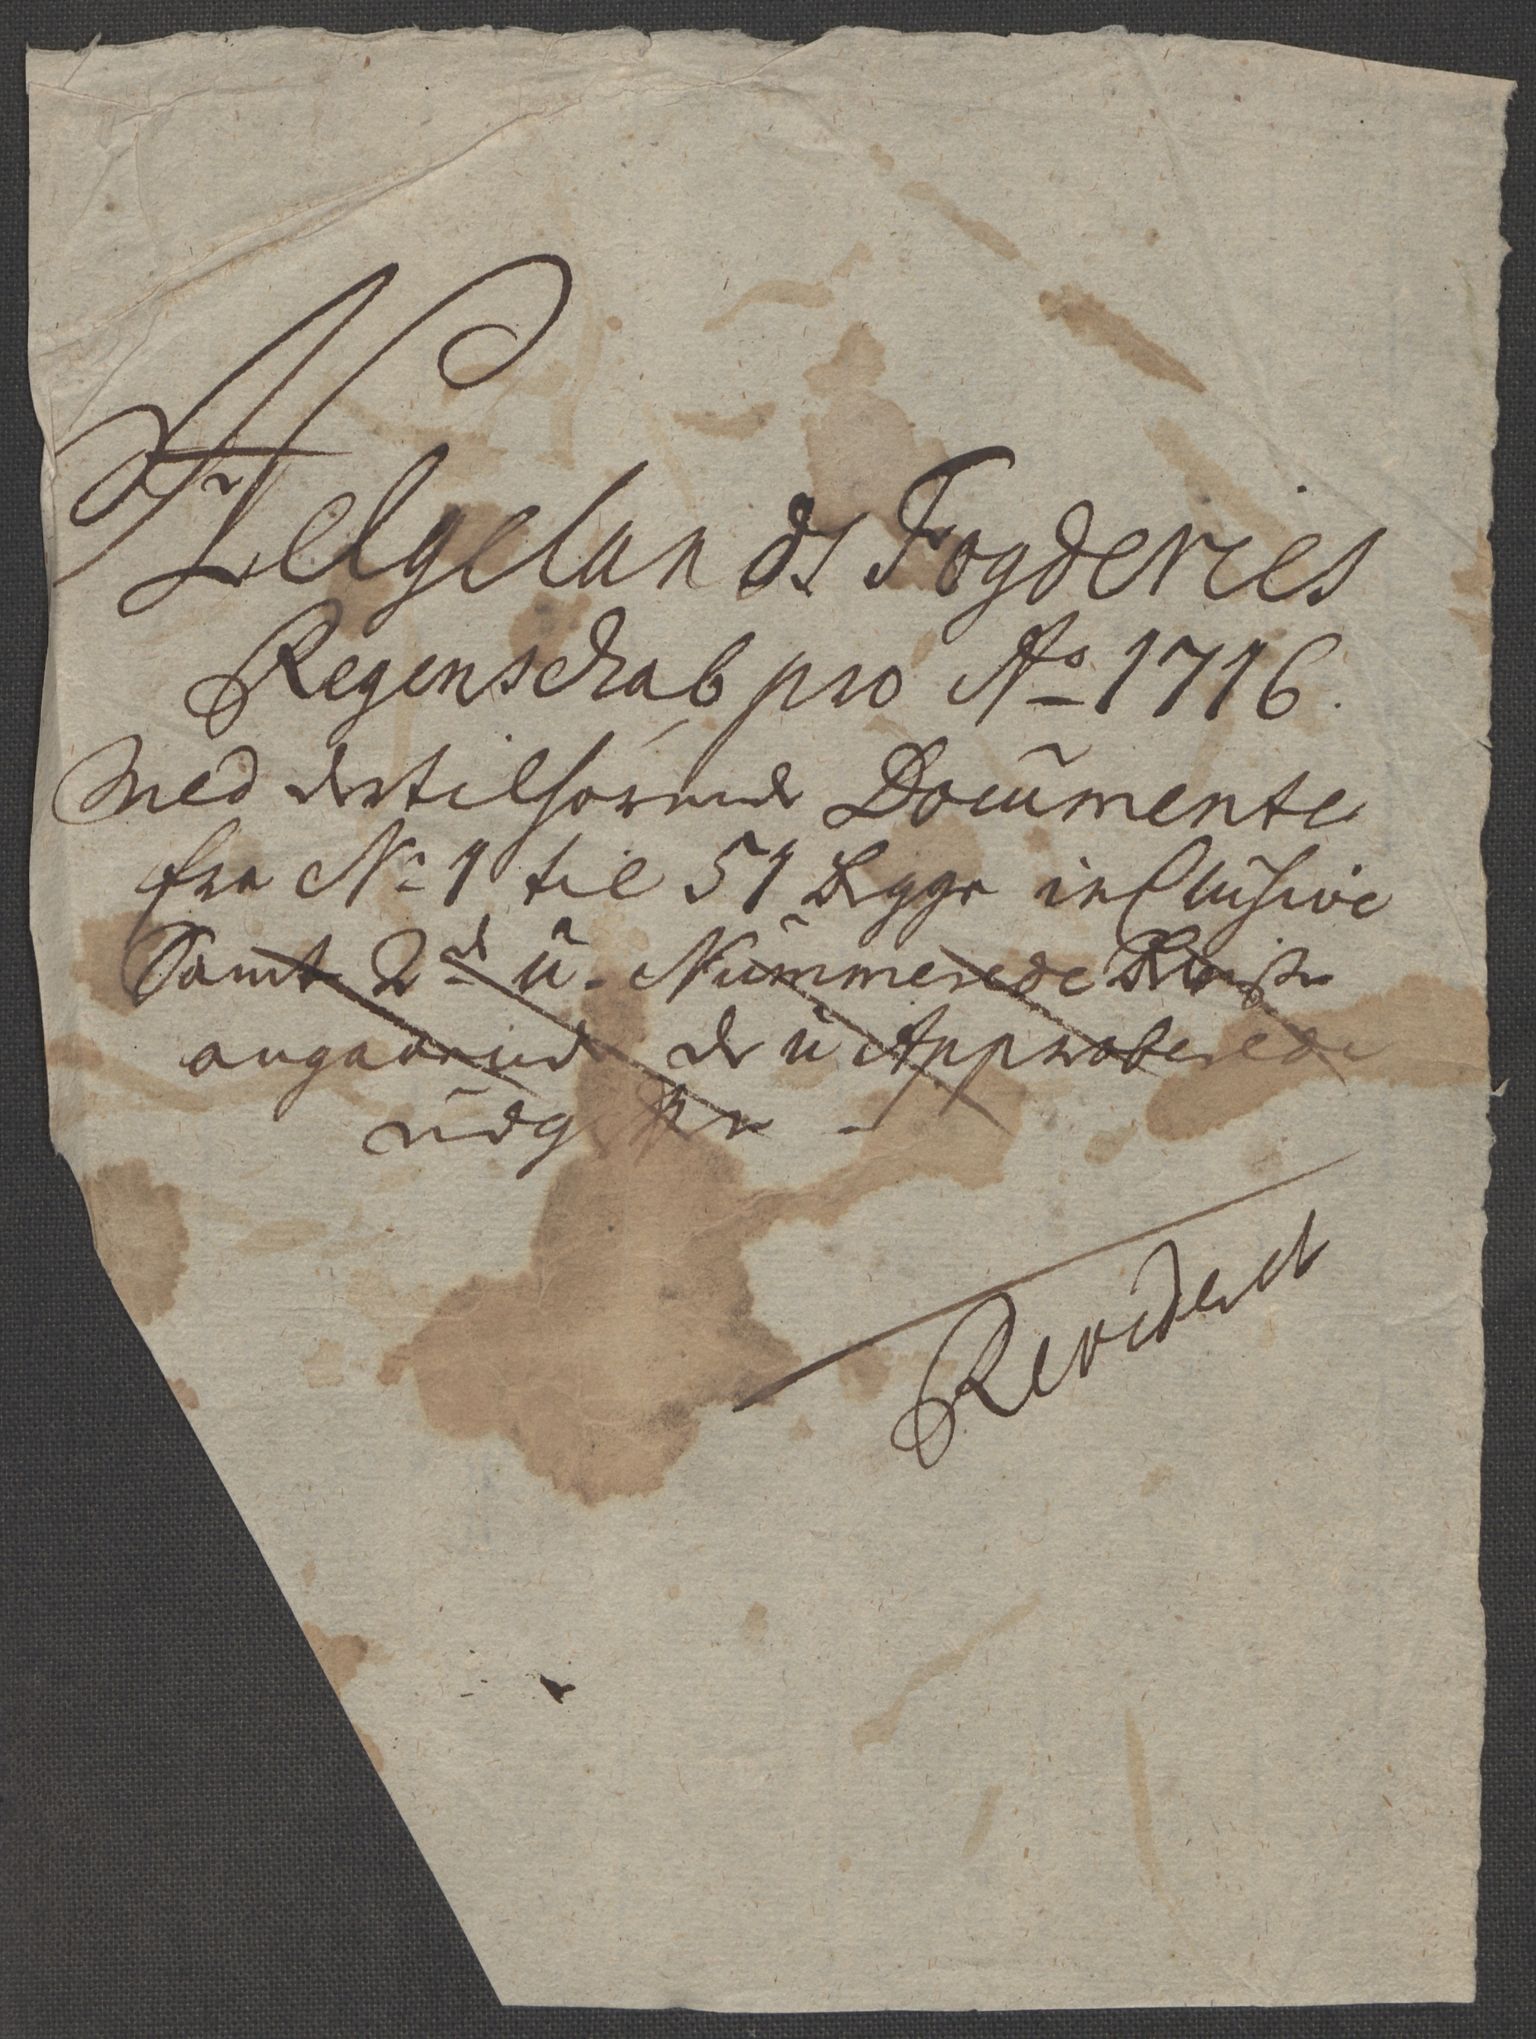 Helgelands Fogderies
Regenschab pro Ao 1716.
Med dertilhørende Documenter
fra No 1 til 51 Begge inClusive
Samt 2de u-Nummerede
angaaende de u Approberede
udgifter -
Revideret